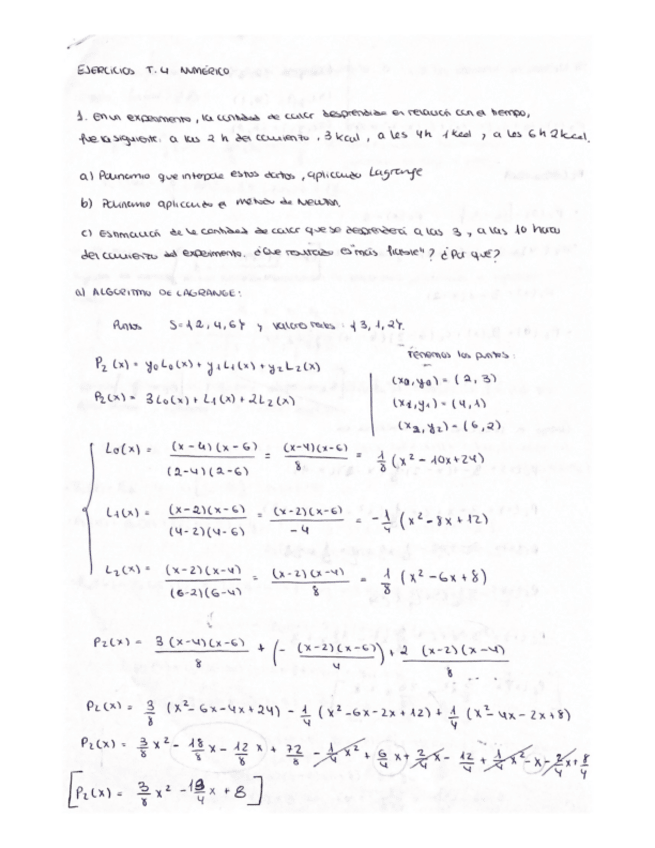 EJERCICIOS T.4 NUMÉRICO
1. En un experimento, la cantidad de calor desprendida en relación con el tiempo,
fue la siguiente: a las 2 h del comienzo, 3 kcal, a las 4h 1 kcal, a las 6 h 2 kcal.
a) Polinomio que interpole estos datos, aplicando Lagrange
b) Polinomio aplicando el método de Newton.
c) Estimación de la cantidad de calor que se desprenderá a las 3, a las 10 horas
del comienzo del experimento. ¿Que resultado es más "fiable"? ¿Por qué?
a) ALGORITMO DE LAGRANGE:
Puntos S={2,4,6} y valores nodos: {3,1,2}.
Tenemos los puntos:
P₂(x) = y₀L₀(x) + y₁L₁(x) + y₂L₂(x)
(x₀,y₀) = (2,3)
P₂(x) = 3L₀(x) + L₁(x) + 2L₂(x)
(x₁,y₁) = (4,1)
(x₂,y₂) = (6,2)
L₀(x) = (x-4)(x-6) / (2-4)(2-6) = (x-4)(x-6) / 8 = 1/8 (x² - 10x + 24)
L₁(x) = (x-2)(x-6) / (4-2)(4-6) = (x-2)(x-6) / -4 = -1/4 (x² - 8x + 12)
L₂(x) = (x-2)(x-4) / (6-2)(6-4) = (x-2)(x-4) / 8 = 1/8 (x² - 6x + 8)
P₂(x) = 3(x-4)(x-6) / 8 + (- (x-2)(x-6) / 4) + 2 (x-2)(x-4) / 8
P₂(x) = 3/8 (x² - 6x - 4x + 24) - 1/4 (x² - 6x - 2x + 12) + 1/4 (x² - 4x - 2x + 8)
P₂(x) = 3/8 x² - 18/8 x - 12/8 x + 72/8 - 1/4 x² + 6/4 x + 2/4 x - 12/4 + 1/4 x² - x - 2/4 x + 8/4
[P₂(x) = 3/8 x² - 13/4 x + 8]